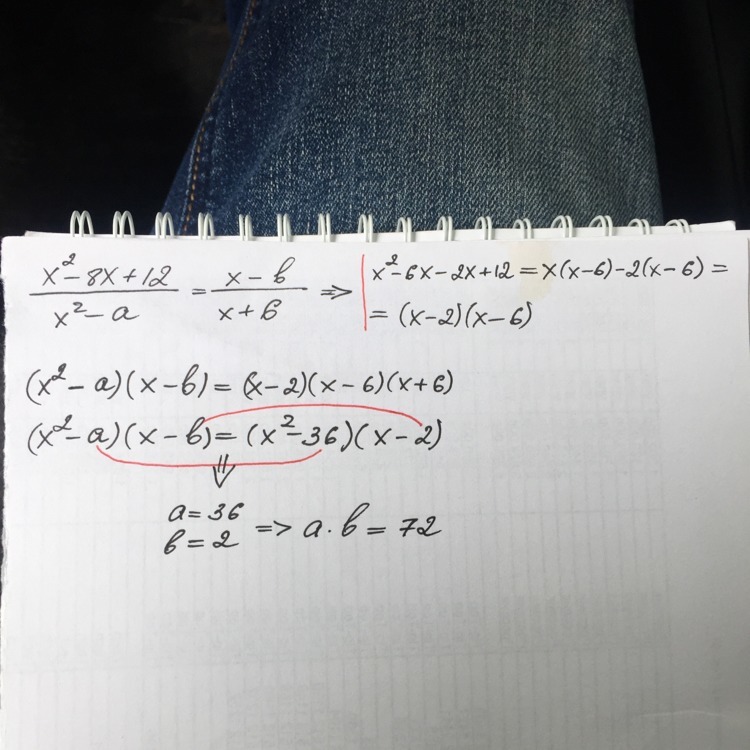 x²-8x+12 / x²-a = x-b / x+6 =>
x²-6x-2x+12 = x(x-6)-2(x-6) =
= (x-2)(x-6)
(x²-a)(x-b) = (x-2)(x-6)(x+6)
(x²-a)(x-b) = (x²-36)(x-2)
⇓
a=36
b=2 => a·b = 72